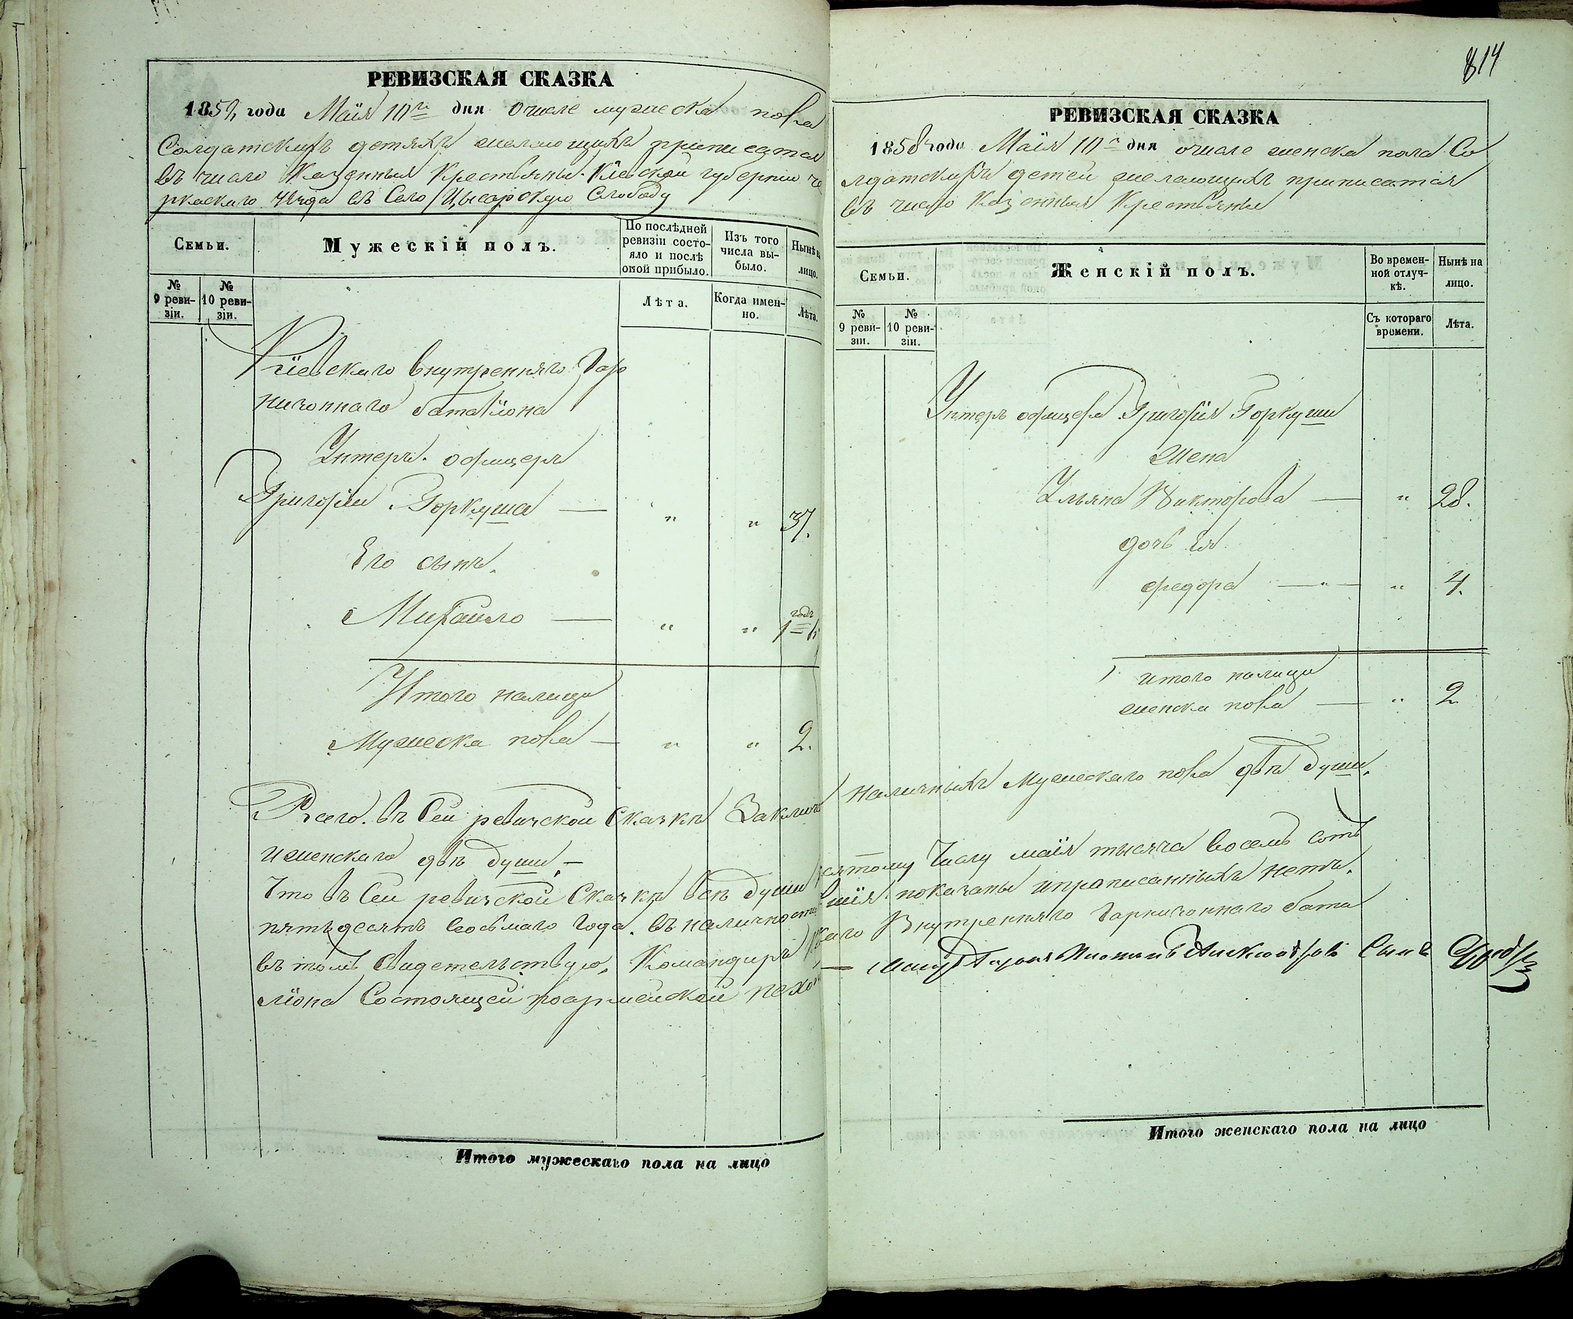 814
РЕВИЗСКАЯ СКАЗКА
1858 года Маія 10го дня о числе мужеска пола
Солдатскихъ детяхъ желающихъ приписатся
въ число Казенныхъ Крестьянъ. Кіевской губерніи Че
ркаскаго уезда въ Село Цысарскую Слободу
Семьи.
Мужескій полъ.
По послѣдней ревизіи состояло и послѣ оной прибыло.
Изъ того числа выбыло.
Нынѣ на лицо.
№ 9 ревизіи.
№ 10 ревизіи.
Лѣта.
Когда именно.
Лѣта.
Кіевскаго внутренняго Гар
низоннаго баталіона
Унтеръ офицеръ
Григорій Горкуша — " " 37.
Его сынъ.
Михайло — " " 1
годъ
Итого налицо
Мужеска пола — " " 2.
РЕВИЗСКАЯ СКАЗКА
1858 года Маія 10го дня о числе женска пола Со
лдатскихъ детей желающихъ приписатся
въ число Казенныхъ Крестьянъ
Семьи.
Женскій полъ.
Во временной отлучкѣ.
Нынѣ на лицо.
№ 9 ревизіи.
№ 10 ревизіи.
Съ котораго времени.
Лѣта.
Унтеръ офицера Григорія Горкуши
Жена
Ульяна Викторова — " 28.
дочь Ея
Федора — " — " 4.
итого налицо
женска пола — " 2
Всего въ Сей ревизской Сказкѣ Заключ наличныхъ Мужескаго пола двѣ души,
и женскаго двѣ души, —
Что въ Сей ревизской Сказкѣ всѣ души десятому Числу маія тысяча восемь сотъ
пятьдесятъ восьмаго года. въ наличности показаны и прописанныхъ нетъ.
въ томъ Свидетельствую, Командиръ Внутренняго Гарнизоннаго бата
ліона Состоящей по армейской пехо — Сынъ
Итого мужескаго пола на лицо
Итого женскаго пола на лицо